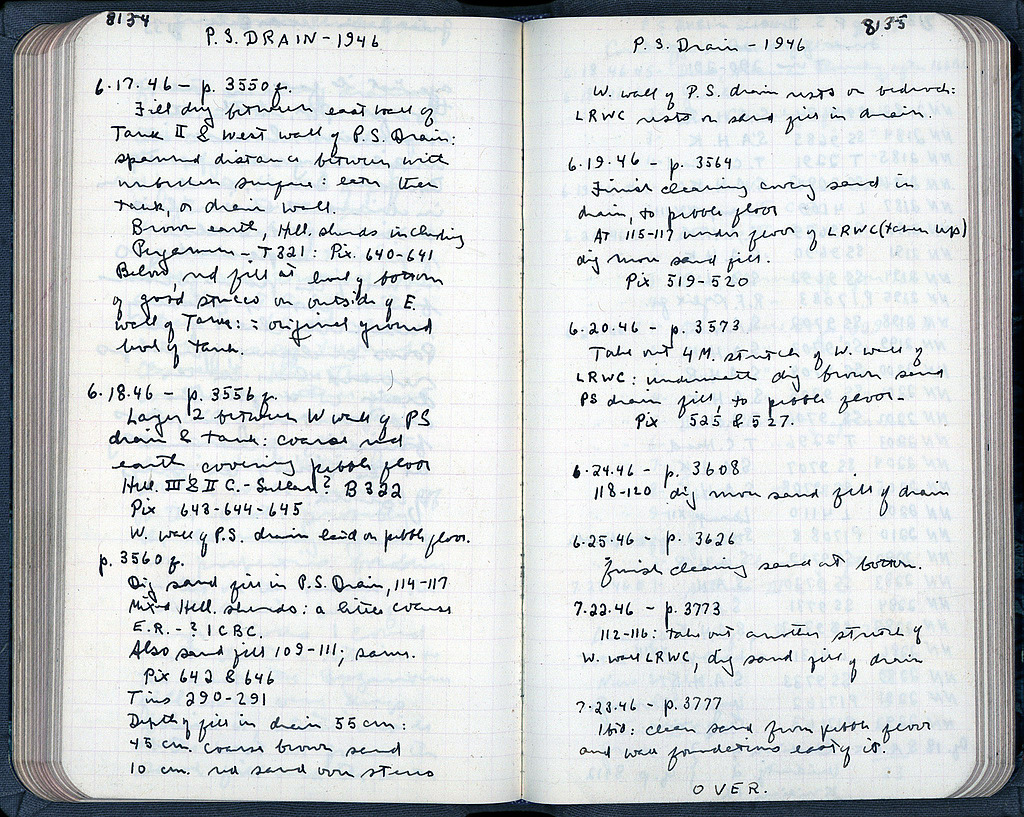 8134
P. S. DRAIN - 1946
6.17.46 - p. 3550 f.
Fill dug between east wall of
Tank II & west wall of P.S. Drain:
spanned distance between with
unbroken surface: later than
tank, or drain wall.
Brown earth, Hell. sherds including
Pergamene - T 321: Pix. 640-641
Below red fill at level of bottom
of good stucco on outside of E.
wall of Tank: ∴ original ground
level of tank.
6.18.46 - p. 3556 f.
Layer 2 between W wall of PS
drain & tank: coarse red
earth covering pebble floor
Hell. III & II C. - Sullan? B 322
Pix 643-644-645
W. wall of P.S. drain laid on pebble floor.
p. 3560 f.
Dig sand fill in P.S. Drain, 114-117
Mixed Hell. sherds: a little coarse
E.R. - ? 1 C BC.
Also sand fill 109-111; same.
Pix 642 & 646
Tins 290-291
Depth of fill in drain 55 cm:
45 cm. coarse brown sand
10 cm. red sand over stereo
8135
P. S. Drain - 1946
W. wall of P.S. drain rests on bedrock:
LRWC rests on sand fill in drain.
6.19.46 - p. 3564
Finish clearing away sand in
drain, to pebble floor
At 115-117 under floor of LRWC (taken up)
dig more sand fill.
Pix 519-520
6.20.46 - p. 3573
Take out 4 M. stretch of W. wall of
LRWC: underneath dig brown sand
PS drain fill, to pebble floor -
Pix 525 & 527.
6.24.46 - p. 3608
118-120 dig more sand fill of drain
6.25.46 - p. 3626
Finish clearing sand at bottom.
7.22.46 - p. 3773
112-116: take out another stretch of
W. wall LRWC, dig sand fill of drain
7.23.46 - p. 3777
Ibid: clean sand from pebble floor
and wall foundations east of it.
OVER.